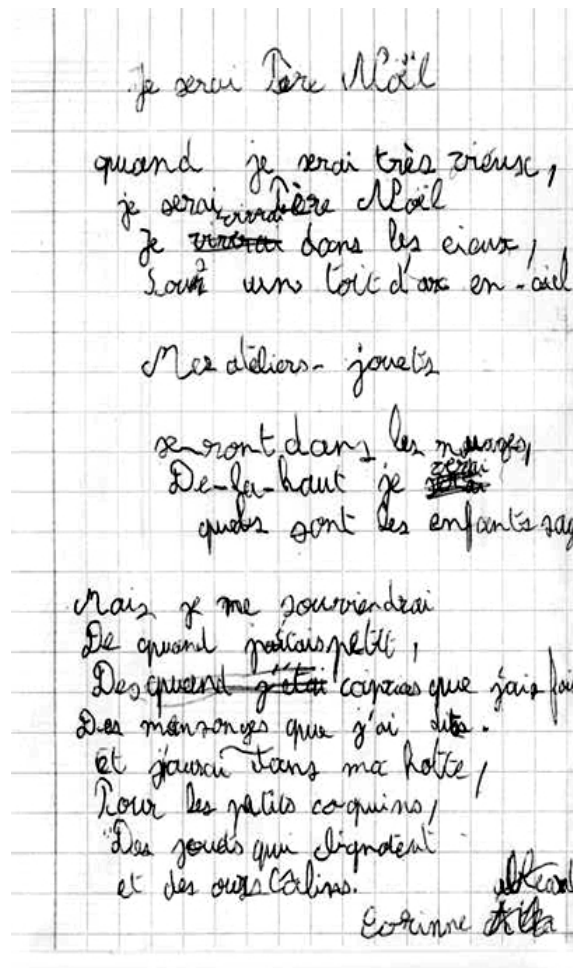 Je serai Père Noël
quand je serai très vieux,
je serai Père Noël
Je vivrai dans les cieux,
Sous un toit d'arc en-ciel
Mes ateliers-jouets
se-ront dans les nuages,
De-la-haut je verai
quels sont les enfants sag
Mais je me souviendrai
De quand j'étais petit,
Des quand j'étai caprices que j'ais fai
Des mensonges que j'ai dits.
et j'aurai dans ma hotte,
Pour les petits coquins,
Des jouets qui clignotent
et des ours Câlins.
Corinne